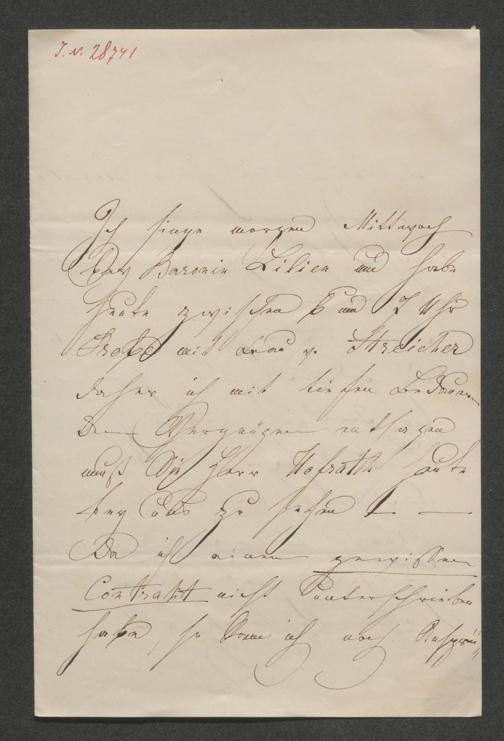 I. N. 28741
Ich singe morgen Mittwoch
bey Baronin Lilien und habe
heute zwischen 6 und 7 Uhr
Probe mit Frau v. Streicher
daher ich mit tiefen Bedauern
dem Vergnügen entsagen
muß Sie Herr Hofrath heute
bey uns zu sehen! —
Da ich einen gewissen
Contrakt nicht unterschrieben
habe, so kann ich auch